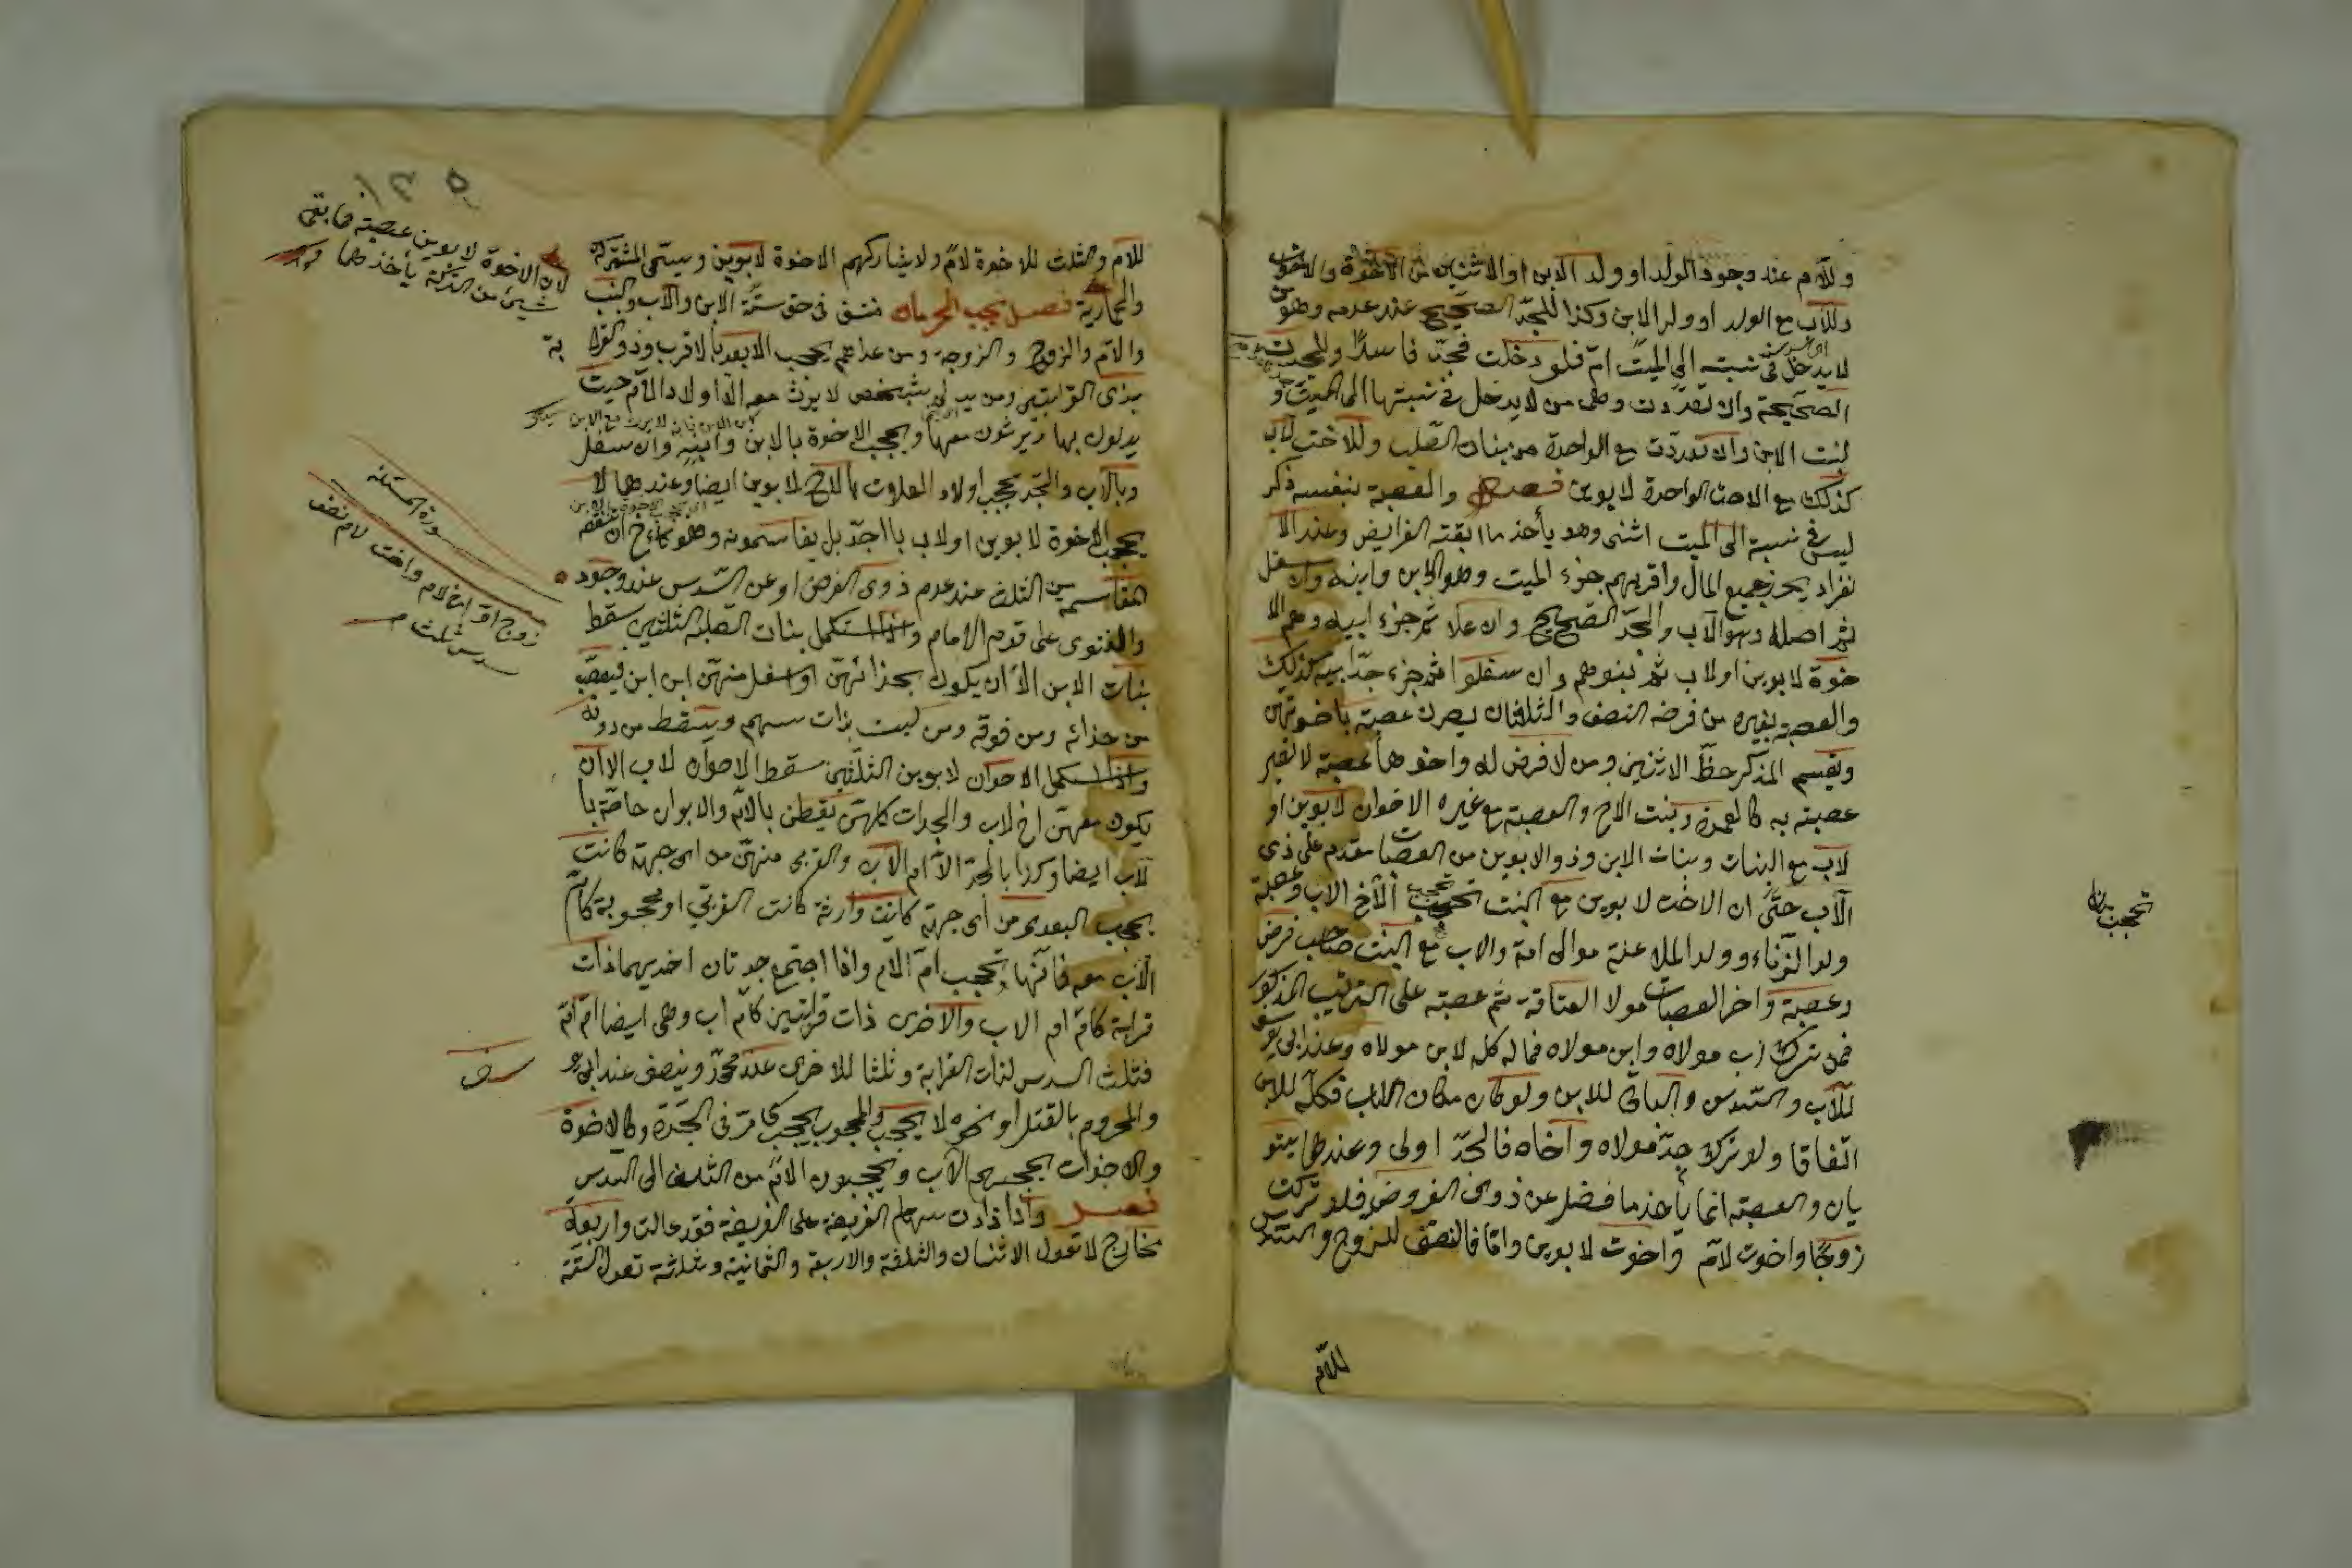 وللأم عند وجود الولد او ولد الابن او الاثنين من الاخوة والاخوات
وللأب مع الولد او ولد الابن وكذا للجد الصحيح عند عدمه وهو من
لا يدخل في نسبته الى الميت ام فلو دخلت فجد فاسد وللجدة
الصحيحة وان تعددت وهي من لا يدخل في نسبتها الى الميت
لبنت الابن وان تعددت مع الواحدة من بنات الصلب وللاخت لاب
كذلك مع الاخت الواحدة لابوين فصل والعصبة بنفسه ذكر
ليس في نسبة الى الميت انثى وهو يأخذ ما ابقته الفرايض وعند الا
نفراد يحرز جميع المال واقربهم جزء الميت وهو الابن وابنه وان سفل
ثم اصله وهو الأب والجد الصحيح وان علا ثم جزء ابيه وهم الا
خوة لابوين او لاب ثم بنوهم وان سفلوا ثم جزء جد ابيه كذلك
والعصبة بغيره من فرضه النصف والثلثان يصرن عصبة باخوتهن
ويقسم للذكر حظ الانثيين ومن لا فرض له واخوها عصبة لا تصير
عصبته به كالعمة وبنت الاخ والعصبة مع غيره الاخوات لابوين او
لاب مع البنات وبنات الابن وذو الابوين من العصبات مقدم على ذي
الأب حتى ان الاخت لابوين مع البنت تحجب الأخ لاب وعصبة
ولد الزناء وولد الملاعنة موالى امه والاب مع البنت صاحب فرض
وعصبة واخر العصبات مولا العتاقة ثم عصبته على الترتيب المذكور
فمن ترك اب مولاه وابن مولاه فماله كله لابن مولاه وعند ابي يوسف
للأب السدس والباقي للابن ولو كان مكان الاب فكله للابن
اتفاقا ولو ترك جد مولاه واخاه فالجد اولى وعندهما يستو
يان والعصبة انما يأخذ ما فضل عن ذوى الفروض فلو تركت
زوجا واخوت لأم واخوت لابوين واما فالنصف للزوج والسدس
للأم
تحجب
للأم والثلث للاخوة لأم ولا يشاركهم الاخوة لابوين ويسمى المشركة
والحمارية فصل حجب الحرمان منتف في حق ستة الابن والأب والبنت
والأم والزوج والزوجة ومن عداهم يحجب الابعد بالاقرب وذو القرابة
بذى القرابتين ومن يدلى بشخص لا يرث معه الا اولاد الأم حيث
يدلون بها ويرثون معها ويحجب الاخوة بالابن وابنه وان سفل
وبالأب والجد ويحجب اولاد العلات بالاخ لابوين ايضا وعندهما لا
يحجب الاخوة لابوين او لاب بالجد بل يقاسمونه وهو كأخ ان لم تنقصه
المقاسمة من الثلث عند عدم ذوى الفرض او عن السدس عند وجوده
والفتوى على قول الامام واذا استكمل بنات الصلب الثلثين سقط
بنات الابن الا أن يكون بحذائهن او اسفل منهن ابن ابن فيعصب
من حذائه ومن فوقه ومن ليست بذات سهم ويسقط من دونه
واذا استكمل الاخوات لابوين الثلثين سقط الاخوات لاب الا أن
يكون معهن اخ لاب والجدات كلهن يسقطن بالأم والابوات خاصة با
لأب ايضا وكذا بالجد الا ام الأب والقربى منهن من اى جهة كانت
يحجب البعدى من اى جهة كانت وارثة كانت القربى او محجوبة كأم
الأب معه فانها تحجب ام الام واذا اجتمع جدتان احديهما ذات
قرابة كأم ام الاب والاخرى ذات قرابتين كأم اب وهى ايضا ام ام
فثلث السدس لذات القرابة وثلثا للاخرى عند محمد وينصف عند ابي
والمحروم بالقتل او نحوه لا يحجب والمحجوب يحجب كما مر في الجدة وكالاخوة
والاخوات يحجبهم الأب ويحجبون الأم من الثلث الى السدس
فصل واذا زادت سهام الفريضة على الفريضة فقد عالت واربعة
مخارج لا تعول الاثنان والثلثة والاربعة والثمانية وثلاثة تعول الستة
لان الاخوة لابوين عصبة فما بقى
شيئ من التركة يأخذ
صورة المسئلة
زوج ام اخ لام واخت لام نصف
سدس ثلث